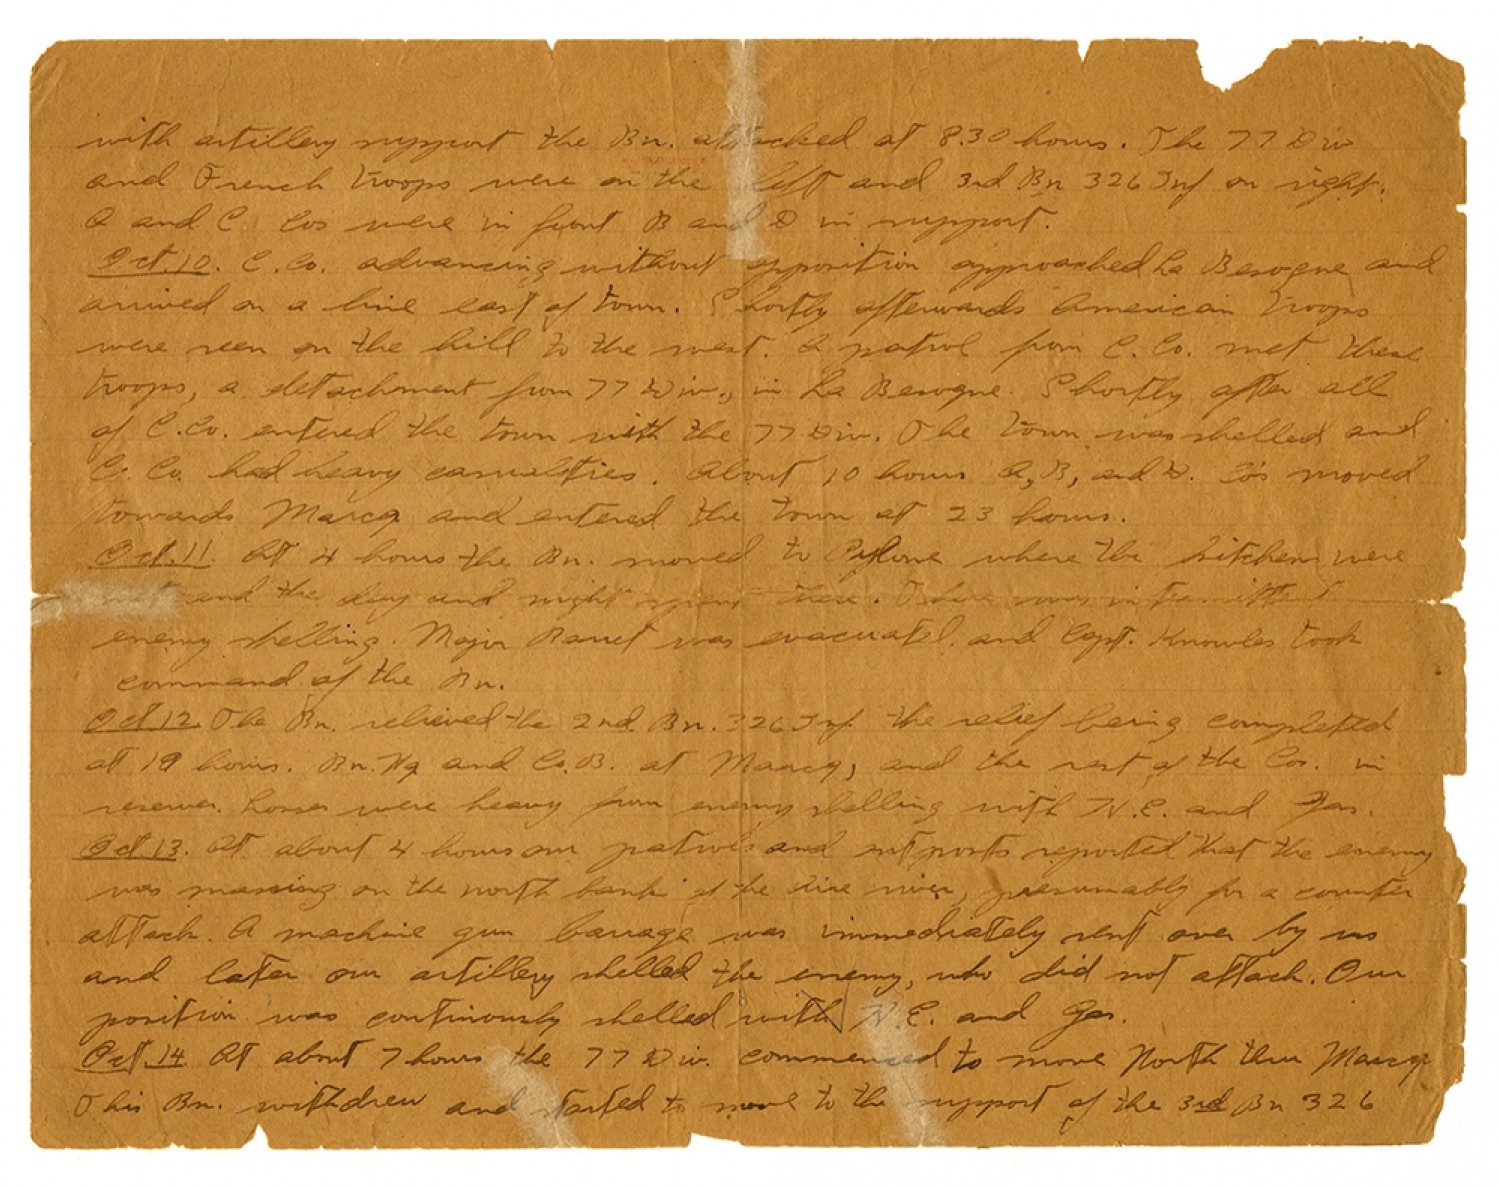 with artillery support the Bn. attacked at 8.30 hours. The 77 Div
and French troops were on the left and 3rd Bn 326 Inf on right.
A and C Cos were in front B and D in support.
Oct.10. C.Co. advancing without opposition approached La Besogne and
arrived on a line east of town. Shortly afterwards American troops
were seen on the hill to the west. A patrol from C.Co. met these
troops, a detachment from 77 Div., in La Besogne. Shortly after all
of C.Co. entered the town with the 77 Div. The town was shelled and
C. Co. had heavy casualties. About 10 hours A, B, and D. Co's moved
towards Marcq and entered the town at 23 hours.
Oct.11. At 4 hours the Bn. moved to Pylone where the kitchens were
and the day and night spent there. There was intermittent
enemy shelling. Major was evacuated and Capt. Knowles took
command of the Bn.
Oct.12. The Bn. relieved the 2nd Bn. 326 Inf. the relief being completed
at 19 hours. Bn. Hq and Co.B. at Marcq, and the rest of the Cos. in
reserve. Losses were heavy from enemy shelling with H.E. and Gas.
Oct.13. At about 4 hours our patrols and outposts reported that the enemy
was massing on the north bank of the Aire river, presumably for a counter
attack. A machine gun barrage was immediately sent over by us
and later our artillery shelled the enemy, who did not attack. Our
position was continously shelled with H.E. and Gas.
Oct.14. At about 7 hours the 77 Div. commenced to move North thru Marcq
This Bn. withdrew and started to move to the support of the 3rd Bn 326